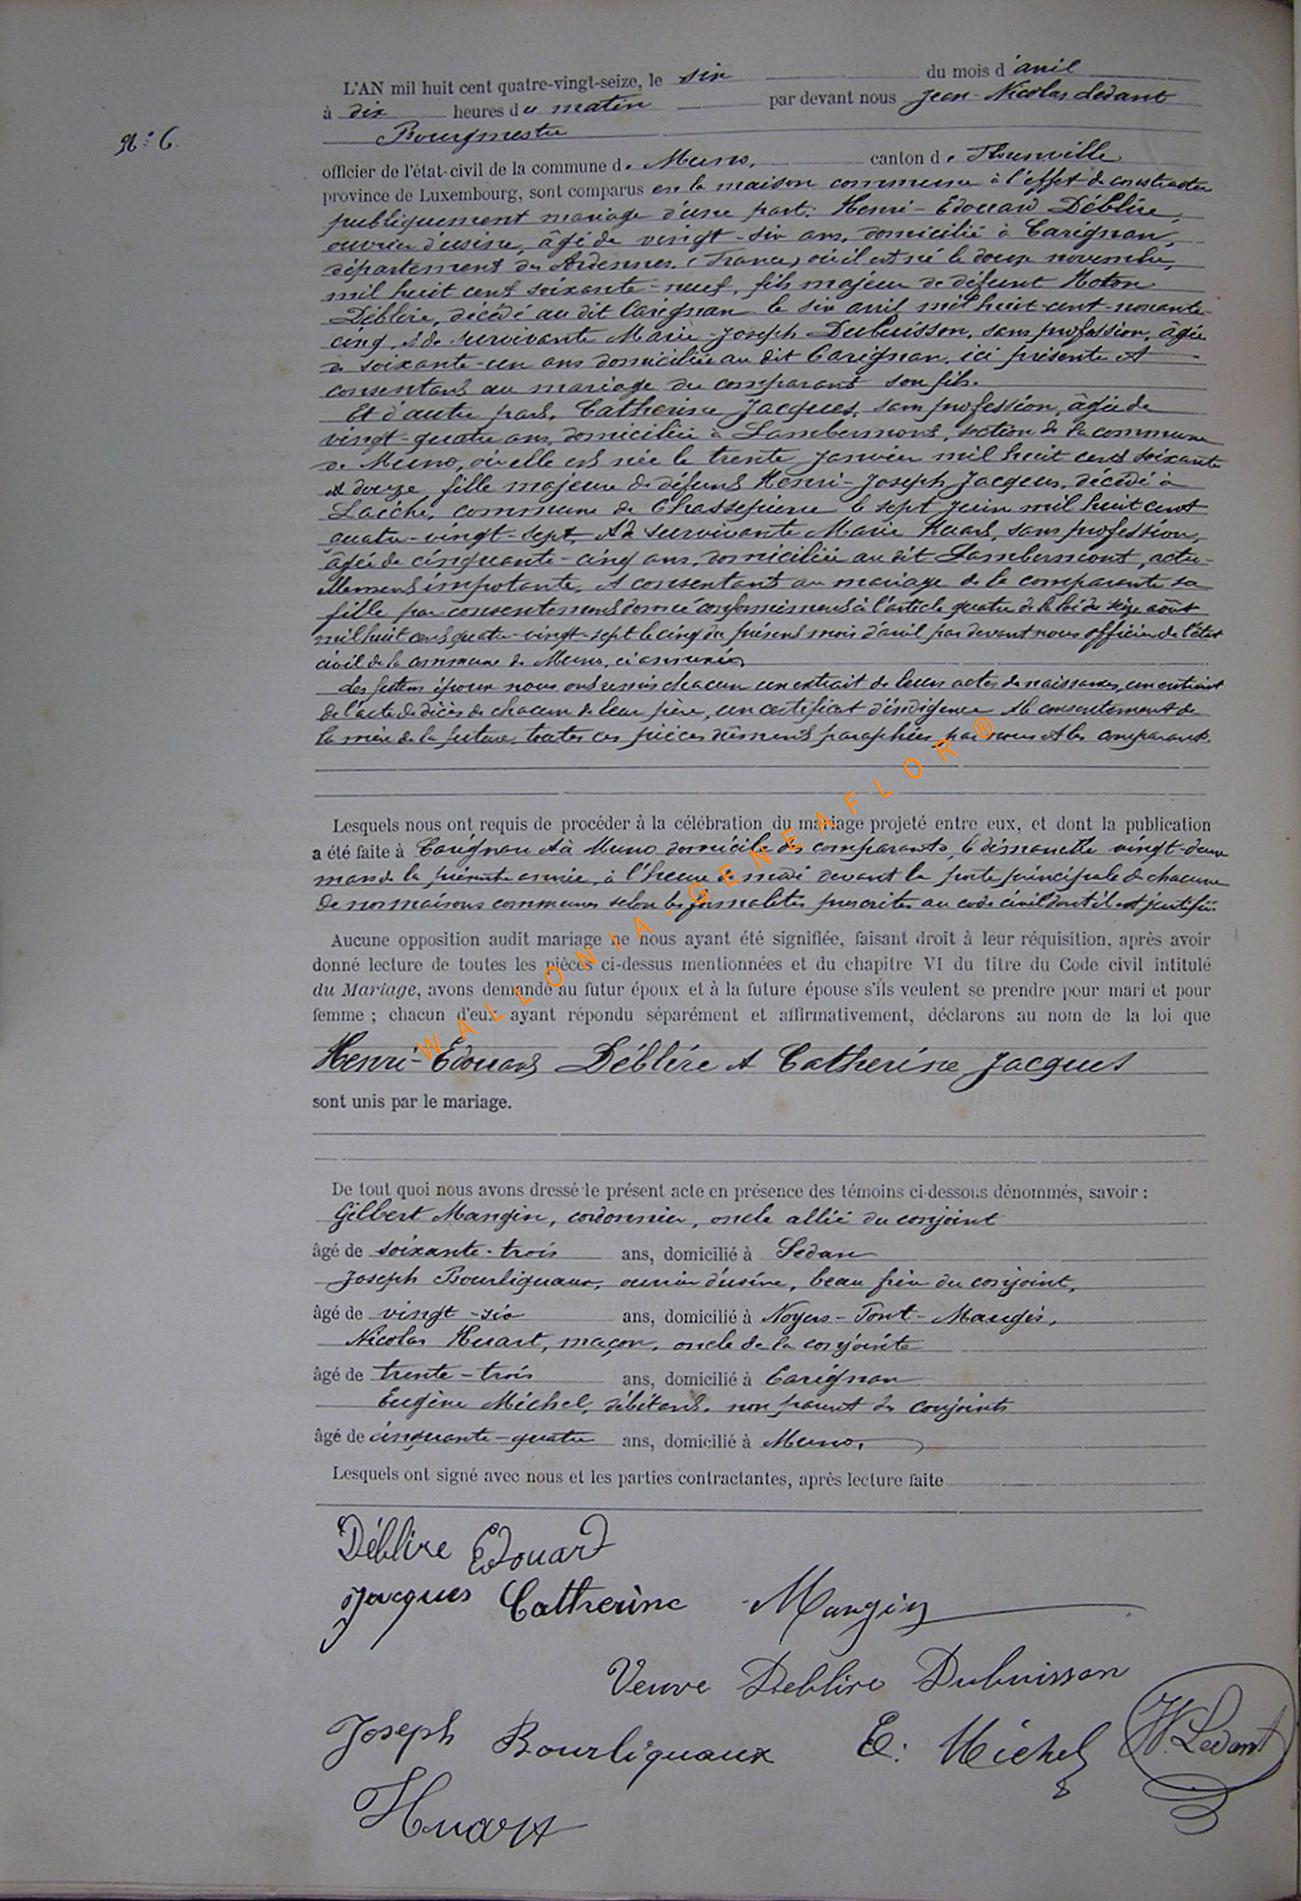 N° 6
L'AN mil huit cent quatre-vingt-seize, le six du mois d'avril
à dix heures du matin par devant nous Jean-Nicolas Ledant
Bourgmestre
officier de l'état-civil de la commune de Muno, canton de Florenville
province de Luxembourg, sont comparus en la maison commune à l'effet de contracter
publiquement mariage d'une part: Henri-Edouard Déblire,
ouvrier d'usine, âgé de vingt-six ans, domicilié à Carignan,
département des Ardennes, (France) où il est né le douze novembre,
mil huit cent soixante-neuf, fils majeur de défunt
Déblire, décédé au dit Carignan le six avril mil huit-cent-nonante-
cinq, et de survivante Marie-Joseph Dubuisson, sans profession, âgée
de soixante-un ans domiciliée au dit Carignan, ici présente et
consentant au mariage du comparant son fils.
Et d'autre part, Catherine Jacques, sans profession, âgée de
vingt-quatre ans, domiciliée à Lambermont, section de la commune
de Muno, où elle est née le trente janvier mil huit cent soixante
et douze, fille majeure de défunt Henri-Joseph Jacques, décédé à
Laiche, commune de Chassepierre le sept juin mil huit cent
quatre-vingt-sept, et de survivante Marie Huart, sans profession,
âgée de cinquante-cinq ans, domiciliée au dit Lambermont, actu-
ellement impotante, et consentant au mariage de la comparante sa
fille par consentement donné conformément à l'article quatre de la loi du seize août
mil huit cent quatre-vingt-sept le cinq du présent mois d'avril par devant nous officier de l'état
civil de la commune de Muno, ci annexé,
Les futurs époux nous ont remis chacun un extrait de leurs actes de naissances, un extrait
de l'acte de décès de chacun de leur père, un certificat d'indigence et le consentement de
la mère de la future, toutes ces pièces dûment paraphées par nous et les comparants.
Lesquels nous ont requis de procéder à la célébration du mariage projeté entre eux, et dont la publication
a été faite à Carignan et à Muno domicile des comparants, le dimanche vingt-deux
mars de la présente année, à l'heure de midi devant la porte principale de chacune
de nos maisons communes selon les formalités prescrites au code civil dont il est justifié.
Aucune opposition audit mariage ne nous ayant été signifiée, faisant droit à leur réquisition, après avoir
donné lecture de toutes les pièces ci-dessus mentionnées et du chapitre VI du titre du Code civil intitulé
du Mariage, avons demandé au futur époux et à la future épouse s'ils veulent se prendre pour mari et pour
femme ; chacun d'eux ayant répondu séparément et affirmativement, déclarons au nom de la loi que
Henri-Edouard Déblire et Catherine Jacques
sont unis par le mariage.
De tout quoi nous avons dressé le présent acte en présence des témoins ci-dessous dénommés, savoir :
Gilbert Mangin, cordonnier, oncle allié du conjoint
âgé de soixante-trois ans, domicilié à Sedan
Joseph Bourliquaux, ouvrier d'usine, beau frère du conjoint,
âgé de vingt-six ans, domicilié à Noyers-Pont-Maugis,
Nicolas Huart, maçon, oncle de la conjointe
âgé de trente-trois ans, domicilié à Carignan
Eugène Michel, débitant, non parent des conjoints
âgé de cinquante-quatre ans, domicilié à Muno,
Lesquels ont signé avec nous et les parties contractantes, après lecture faite
Déblire Edouard
Jacques Catherine Mangin
Veuve Deblire Dubuisson
Joseph Bourliquaux E. Michel N. Ledant
Huart
WALLONIA-GENEAFLOR®